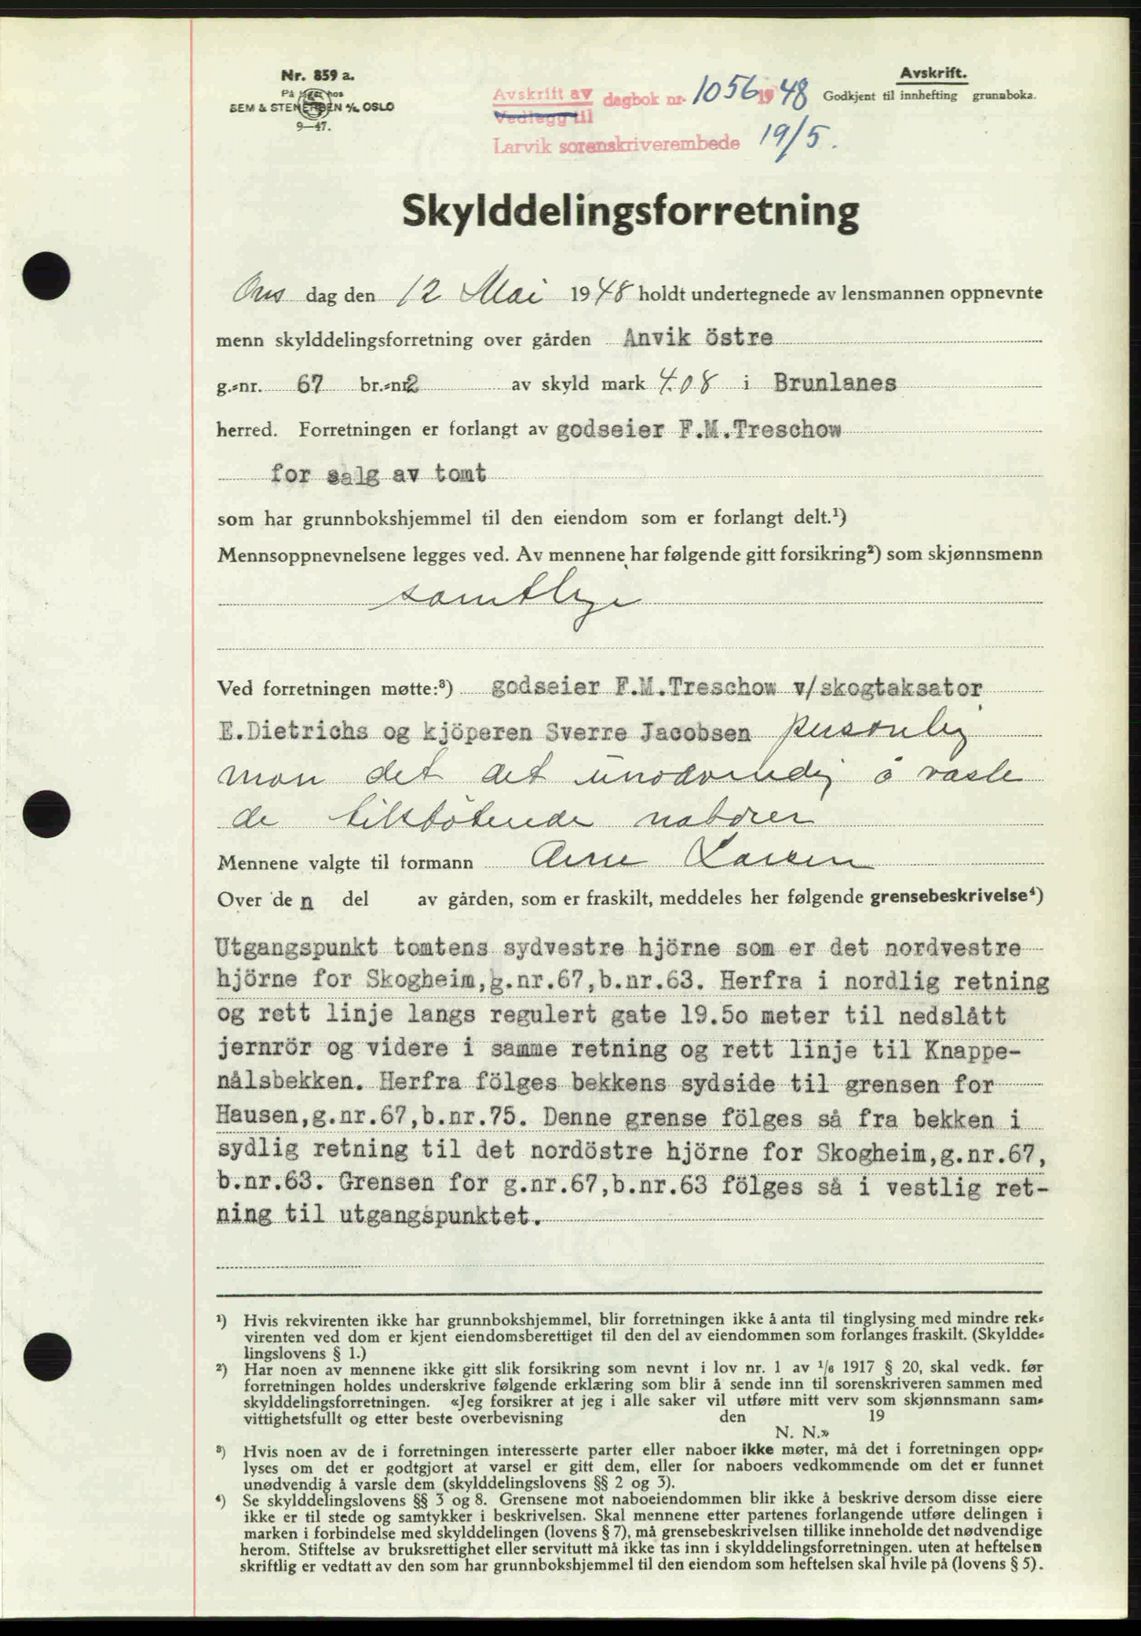 Nr. 859 a.
På lager hos
SEM & STENERSEN A/S OSLO
9—47.
Avskrift av dagbok nr. 1056 1948
Vedlegg til
Larvik sorenskriverembede 19/5.
Avskrift.
Godkjent til innhefting grunnboka.
Skylddelingsforretning
Ons dag den 12 Mai 1948 holdt undertegnede av lensmannen oppnevnte
menn skylddelingsforretning over gården Anvik östre
g.-nr. 67 br.-nr. 2 av skyld mark 4.08 i Brunlanes
herred. Forretningen er forlangt av godseier F.M.Treschow
for salg av tomt
som har grunnbokshjemmel til den eiendom som er forlangt delt.¹)
Mennsoppnevnelsene legges ved. Av mennene har følgende gitt forsikring²) som skjønnsmenn
samtlige
Ved forretningen møtte:³) godseier F.M.Treschow v/skogtaksator
E.Dietrichs og kjöperen Sverre Jacobsen personlig
man det det unødvendig å vasle
de tilstøtende naboer
Mennene valgte til formann Arne Larsen
Over de n del av gården, som er fraskilt, meddeles her følgende grensebeskrivelse⁴)
Utgangspunkt tomtens sydvestre hjörne som er det nordvestre
hjörne for Skogheim,g.nr.67,b.nr.63. Herfra i nordlig retning
og rett linje langs regulert gate 19.5o meter til nedslått
jernrör og videre i samme retning og rett linje til Knappe-
nålsbekken. Herfra fölges bekkens sydside til grensen for
Hausen,g.nr.67,b.nr.75. Denne grense fölges så fra bekken i
sydlig retning til det nordöstre hjörne for Skogheim,g.nr.67,
b.nr.63. Grensen for g.nr.67,b.nr.63 fölges så i vestlig ret-
ning til utgangspunktet.
¹) Hvis rekvirenten ikke har grunnbokshjemmel, blir forretningen ikke å anta til tinglysing med mindre rek-
virenten ved dom er kjent eiendomsberettiget til den del av eiendommen som forlanges fraskilt. (Skyldde-
lingslovens § 1.)
²) Har noen av mennene ikke gitt slik forsikring som nevnt i lov nr. 1 av 1/6 1917 § 20, skal vedk. før
forretningen holdes underskrive følgende erklæring som blir å sende inn til sorenskriveren sammen med
skylddelingsforretningen. «Jeg forsikrer at jeg i alle saker vil utføre mitt verv som skjønnsmann sam-
vittighetsfullt og etter beste overbevisning den 19
N. N.»
³) Hvis noen av de i forretningen interesserte parter eller naboer ikke møter, må det i forretningen opp-
lyses om det er godtgjort at varsel er gitt dem, eller for naboers vedkommende om det er funnet
unødvendig å varsle dem (skylddelingslovens §§ 2 og 3).
⁴) Se skylddelingslovens §§ 3 og 8. Grensene mot naboeiendommen blir ikke å beskrive dersom disse eiere
ikke er til stede og samtykker i beskrivelsen. Skal mennene etter partenes forlangende utføre delingen i
marken i forbindelse med skylddelingen (lovens § 7), må grensebeskrivelsen tillike inneholde det nødvendige
herom. Stiftelse av bruksrettighet eller servitutt må ikke tas inn i skylddelingsforretningen. uten at heftelsen
skriftlig er vedtatt av den som har grunnbokshjemmel til den eiendom som heftelsen skal hvile på (lovens § 5).